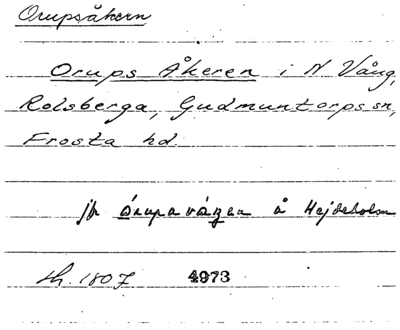 Orupsåkern
Orups Åkeren i N Vång,
Rolsberga, Gudmuntorps sn,
Frosta hd.
jfr Órupavágen å Hejdeholm
Lh. 1807 4973